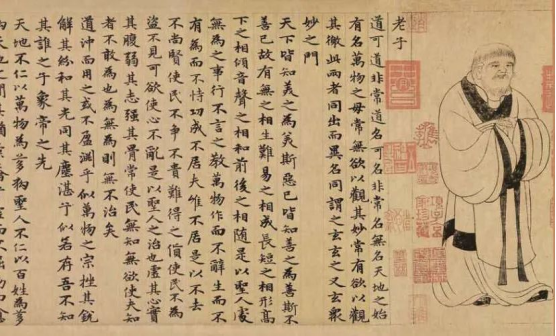 老子
道可道非常道名可名非常名無名天地之始
有名萬物之母常無欲以觀其妙常有欲以觀
其徼此兩者同出而異名同謂之玄玄之又玄衆
妙之門
天下皆知美之為美斯惡已皆知善之為善斯不
善已故有無之相生難易之相成長短之相形高
下之相傾音聲之相和前後之相隨是以聖人處
無為之事行不言之教萬物作而不辭生而不
有為而不恃功成不居夫唯不居是以不去
不尚賢使民不爭不貴難得之貨使民不為
盜不見可欲使心不亂是以聖人之治也虛其心實
其腹弱其志強其骨常使民無知無欲使夫知
者不敢為也為無為則無不治矣
道沖而用之或不盈淵乎似萬物之宗挫其銳
解其紛和其光同其塵湛兮似若存吾不知
其誰之子象帝之先
天地不仁以萬物為芻狗聖人不仁以百姓為芻
狗天地之間其猶